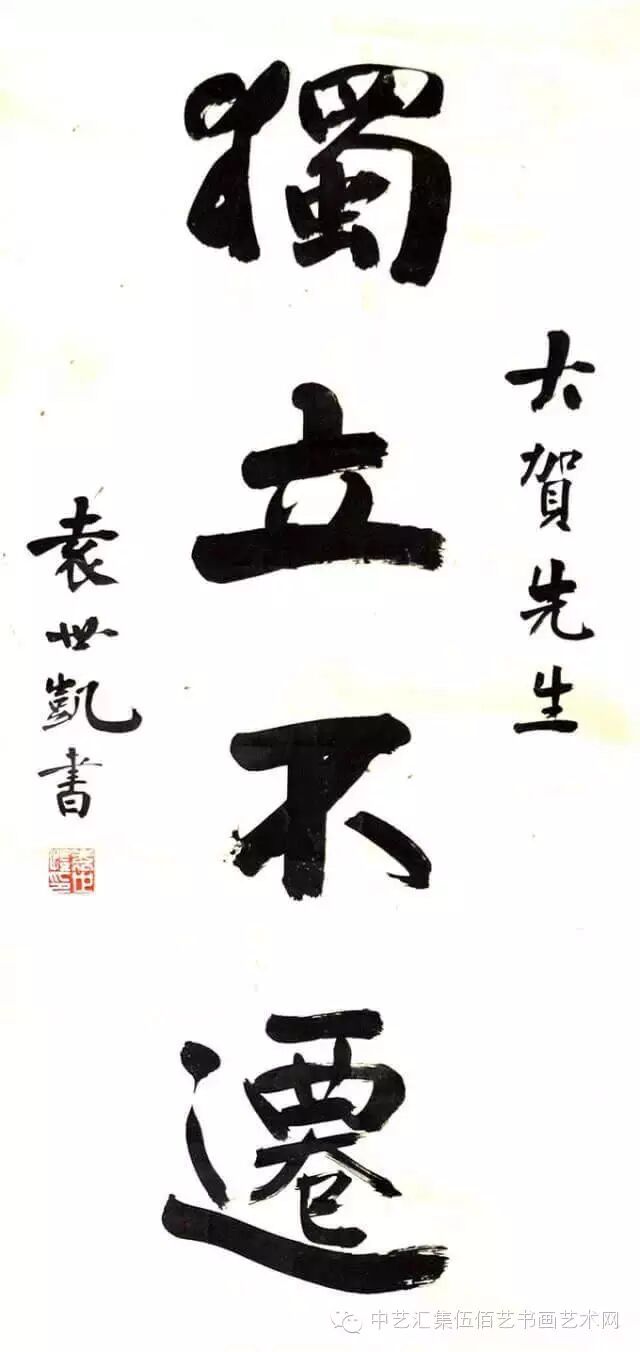 大賀先生
獨立不遷
袁世凱書
袁世凱印
中艺汇集伍佰艺书画艺术网